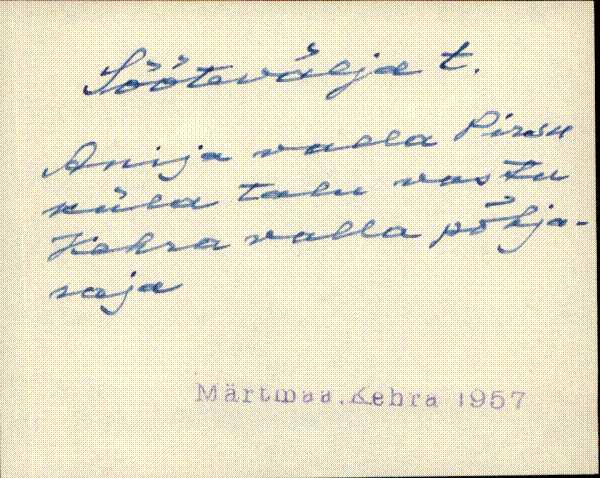 Söötevälja t.
Anija valla Pirsu
küla talu vastu
Kehra valla põhja-
raja
Märtmaa.Kehra 1957